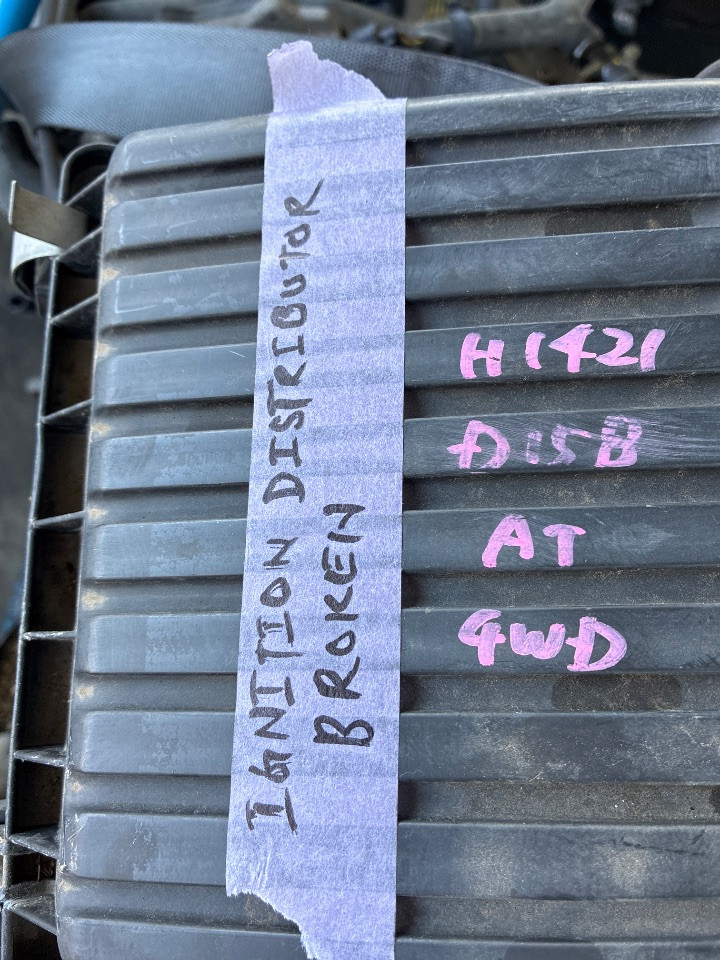 IGNITION DISTRIBUTOR
BROKEN
H1421
D15B
AT
4WD